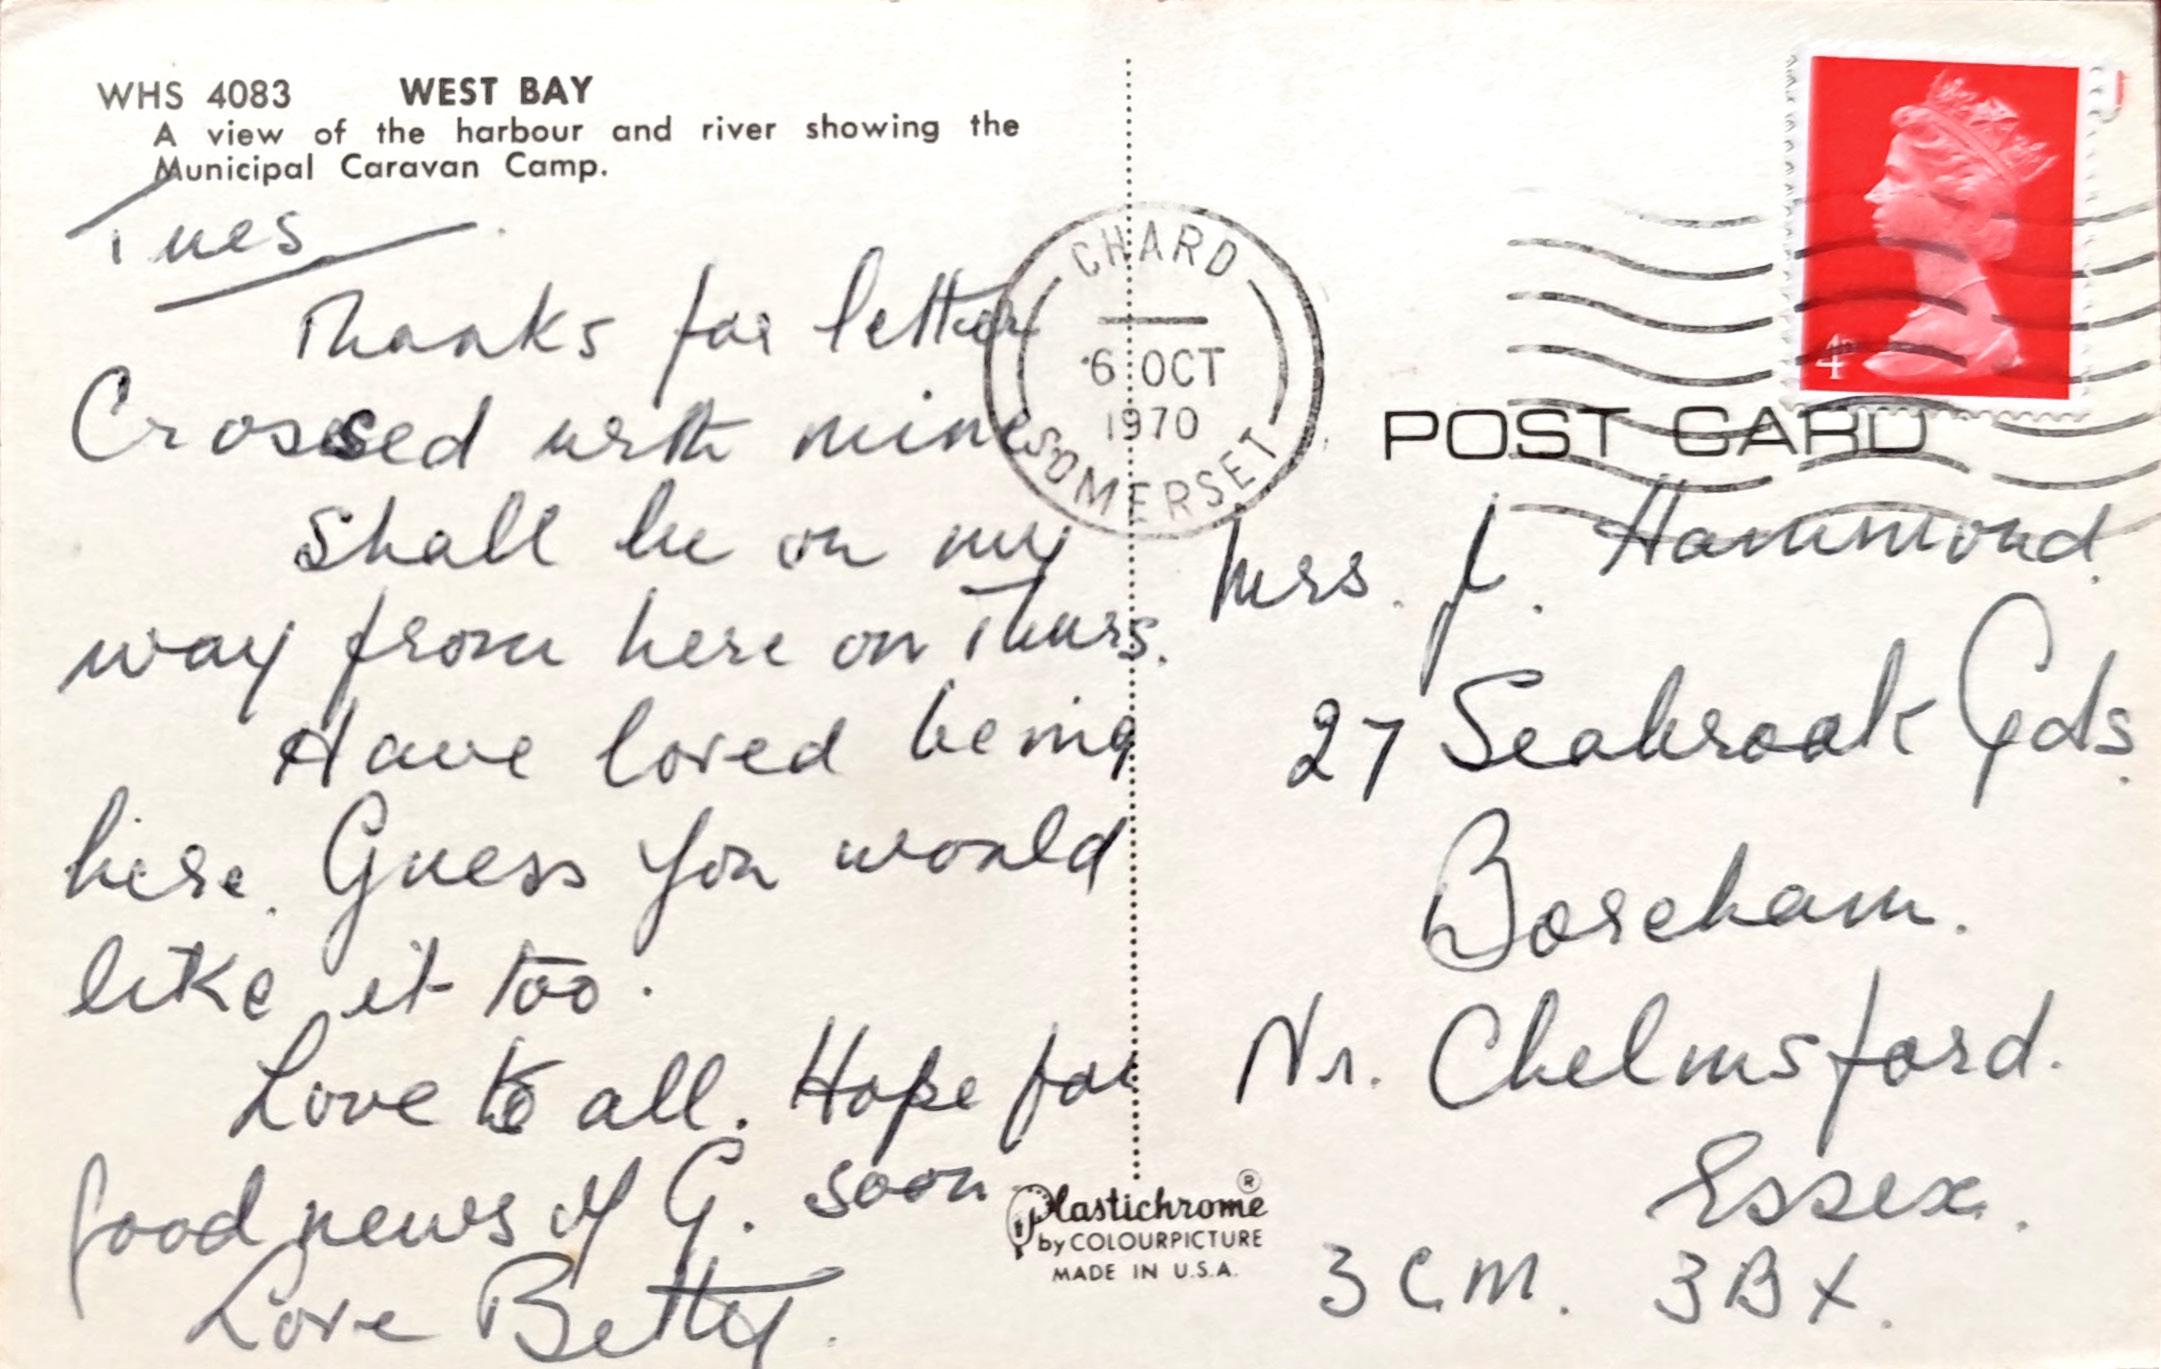 WHS 4083 WEST BAY
A view of the harbour and river showing the
Municipal Caravan Camp.
Tues
Thanks for letter
Crossed with mine
Shall be on my
way from here on Thurs.
Have loved being
here. Guess you would
like it too.
Love to all. Hope for
good news of G. soon
Love Betty.
CHARD
6 OCT
1970
SOMERSET
4D
POST CARD
Mrs. J. Hammond.
27 Seabrook Gds.
Boreham.
Nr. Chelmsford.
Essex.
3 C.M. 3BX.
Plastichrome ®
by COLOURPICTURE
MADE IN U.S.A.